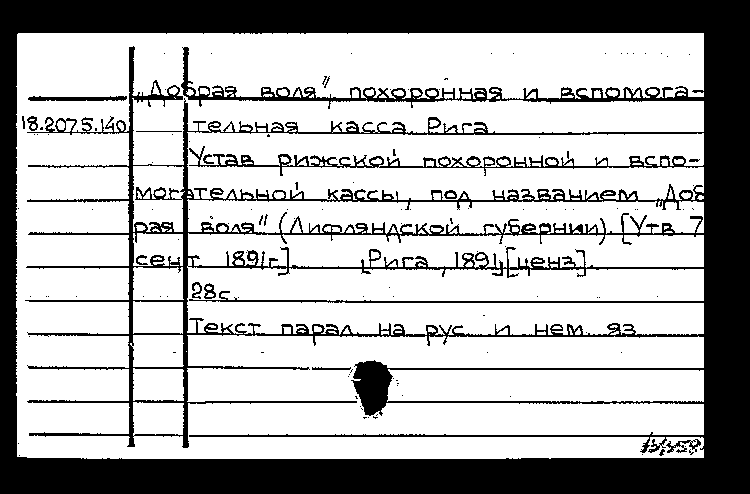 „Добрая воля", похоронная и вспомога-
18.207.5.140 тельная касса. Рига.
Устав рижсской похоронной и вспо-
могательной кассы, под названием „Доб
рая воля" (Лифляндской губернии). [Утв. 7
сент. 1891г.]. [Рига, 1891] [ценз].
28с.
Текст парал. на рус. и нем. яз.